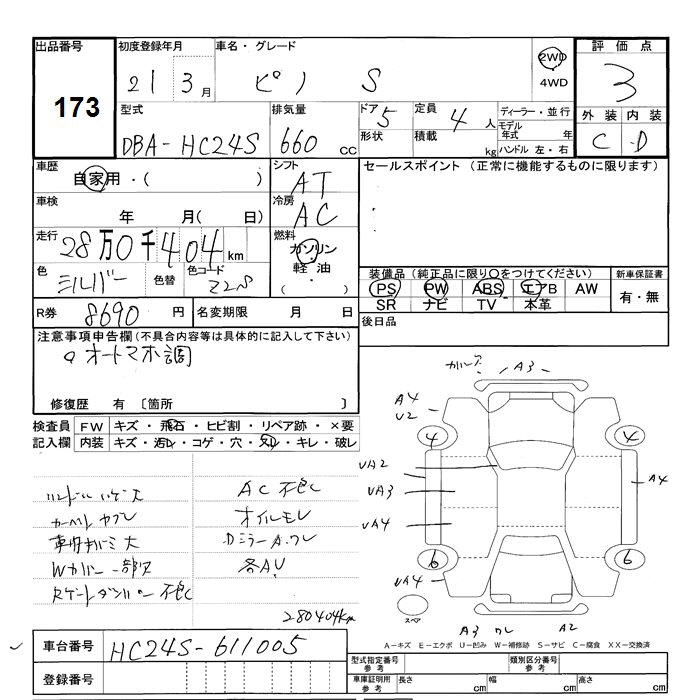 出品番号
173
初度登録年月
21 3月
車名・グレード
ピノ S
2WD
4WD
評価点
3
外装 内装
C D
型式
DBA-HC24S
排気量
660 CC
ドア 5
形状
定員 4人
積載 kg
ディーラー・並行
モデル年式 年
ハンドル 左・右
車歴
自家用・( )
シフト
AT
セールスポイント (正常に機能するものに限ります)
車検
年 月( 日)
冷房
AC
走行
28万0千404km
燃料
ガソリン
軽油
( ・ )
色
シルバー
色替
色コード
Z2S
装備品 (純正品に限り○をつけてください)
PS PW ABS エアB AW
SR ナビ TV 本革
新車保証書
有・無
R券 8690円
名変期限 月 日
後日品
注意事項申告欄(不具合内容等は具体的に記入して下さい)
オートマ不調
修復歴 有 〔箇所 〕
検査員記入欄
FW キズ・飛石・ヒビ割・リペア跡・×要
内装 キズ・汚れ・コゲ・穴・スレ・キレ・破レ
AC不良
オイルモレ
Dミラー A.ワレ
各AU
280404km
A3
A4
U2
4
4
UA2
UA3
UA4
A4
6
6
UA4
スペア
A3 ワレ A2
A-キズ E-エクボ U-凹み W-補修跡 S-サビ C-腐食 XX-交換済
車台番号 HC24S-611005
登録番号
型式指定番号 参考
類別区分番号 参考
車庫証明用 参考
長さ cm
幅 cm
高さ cm